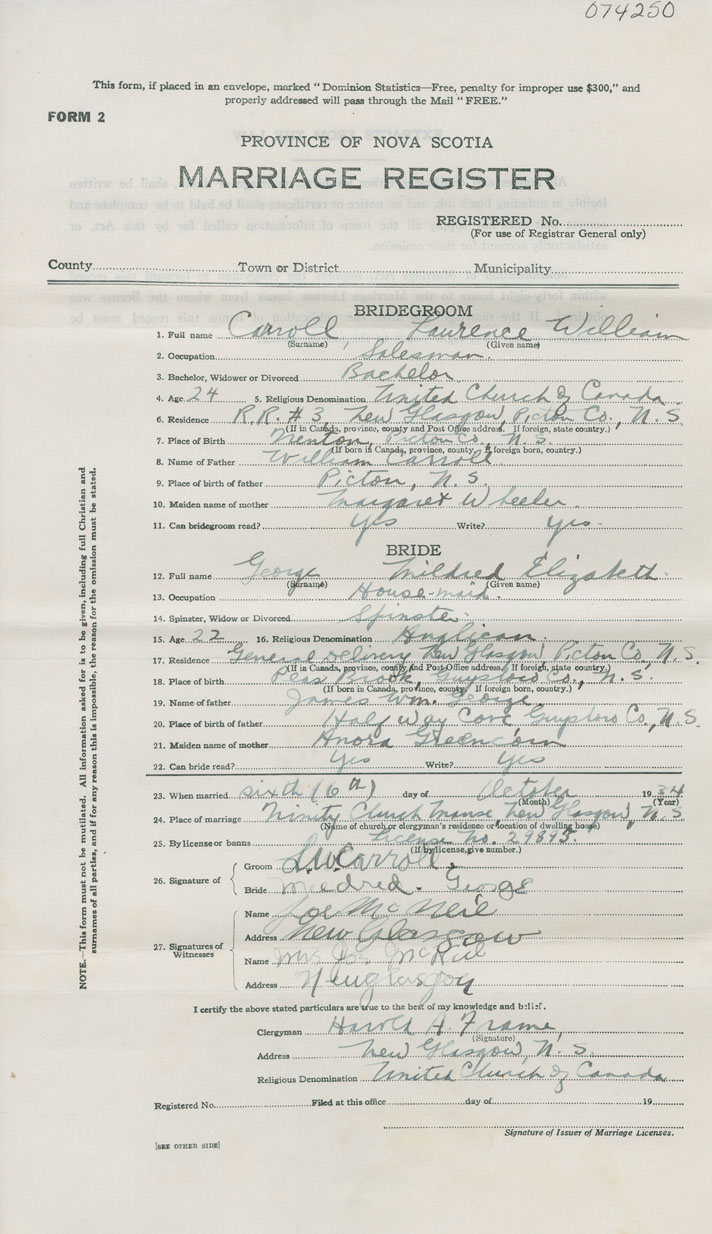 074250
This form, if placed in an envelope, marked "Dominion Statistics—Free, penalty for improper use $300," and
properly addressed will pass through the Mail "FREE."
FORM 2
PROVINCE OF NOVA SCOTIA
MARRIAGE REGISTER
REGISTERED No.
(For use of Registrar General only)
County Town or District Municipality
BRIDEGROOM
1. Full name Carroll, Laurence William
(Surname) (Given name)
2. Occupation Salesman.
3. Bachelor, Widower or Divorced Bachelor
4. Age 24 5. Religious Denomination United Church of Canada.
6. Residence R.R. #3 New Glasgow, Picton Co., N.S.
(If in Canada, province, county and Post Office address. If foreign, state country.)
7. Place of Birth Picton Co., N.S.
(If born in Canada, province, county. If foreign born, country.)
8. Name of Father William Carroll
9. Place of birth of father Picton, N.S.
10. Maiden name of mother Margaret Wheeler.
11. Can bridegroom read? Yes Write? Yes.
BRIDE
12. Full name George Mildred Elizabeth.
(Surname) (Given name)
13. Occupation House-maid.
14. Spinster, Widow or Divorced Spinster.
15. Age 22 16. Religious Denomination Anglican.
17. Residence General Delivery New Glasgow Picton Co., N.S.
(If in Canada, province, county and Post Office address. If foreign, state country.)
18. Place of birth Peas Brook, Guysboro Co., N.S.
(If born in Canada, province, county. If foreign born, country.)
19. Name of father James Wm. George
20. Place of birth of father Half Way Cove Guysboro Co., N.S.
21. Maiden name of mother Anora Greencorn
22. Can bride read? Yes Write? Yes
23. When married sixth (6th) day of October 1934
(Month) (Year)
24. Place of marriage Trinity Church Manse, New Glasgow, N.S.
(Name of church or clergyman's residence or location of dwelling house)
25. By license or banns License No. 29895.
(If by license, give number.)
26. Signature of
Groom L.W. Carroll.
Bride Mildred. George
27. Signatures of Witnesses
Name Joe McNeil
Address New Glasgow
Name Mrs Joe
Address
I certify the above stated particulars are true to the best of my knowledge and belief.
Clergyman Harold A. Frame,
(Signature)
Address New Glasgow, N.S.
Religious Denomination United Church of Canada
Registered No. Filed at this office day of 19
Signature of Issuer of Marriage Licenses.
[SEE OTHER SIDE]
NOTE.—This form must not be mutilated. All information asked for is to be given, including full Christian and
surnames of all parties, and if for any reason this is impossible, the reason for the omission must be stated.